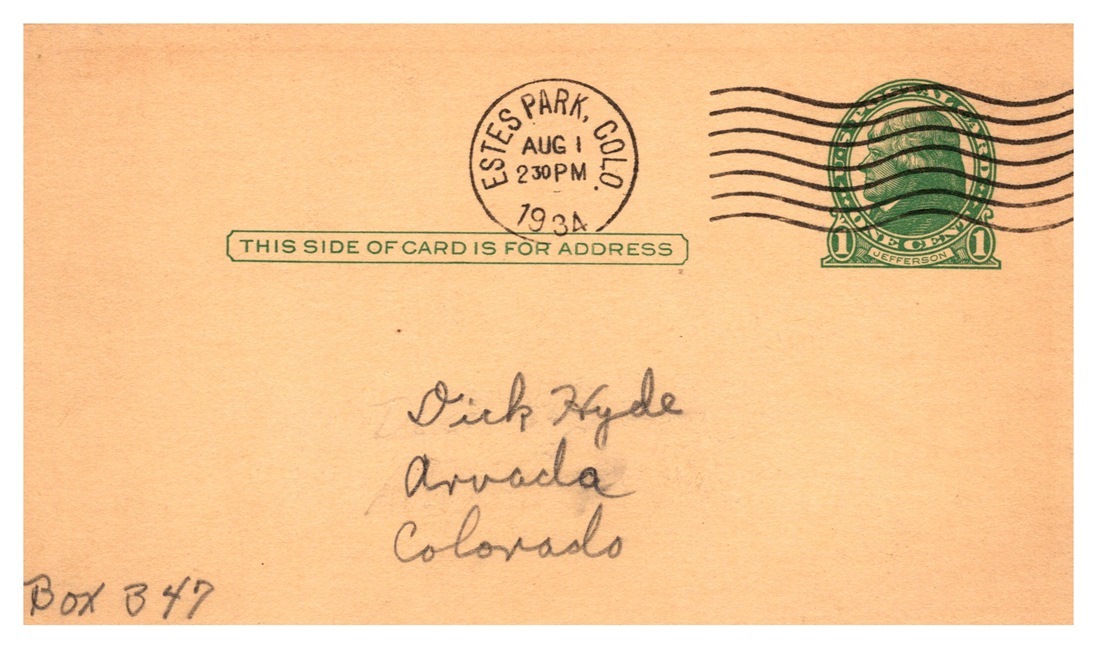 ESTES PARK, COLO.
AUG 1
2 30 PM
1934
U.S. POSTAL CARD
ONE CENT
1 1
JEFFERSON
THIS SIDE OF CARD IS FOR ADDRESS
Dick Hyde
Arvada
Colorado
Box 347